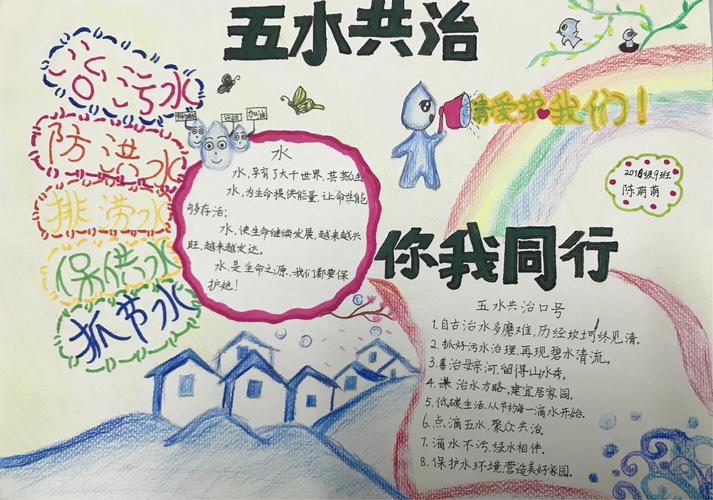 五水共治
治污水
防洪水
排涝水
保供水
抓节水
加油
请爱护我们!
2016级9班
陈萌萌
水
水,孕育了大千世界,
水,为生命提供能量,让命生能
够存活;
水,使生命继续发展,越来越兴
旺,越来越发达。
水,是生命之源,我们都要保
护她!
你我同行
五水共治口号
1.自古治水多磨难,历经坎坷终见清。
2.抓好污水治理,再现碧水清流。
3.善治母亲河,留得山水秀。
4.谋治水方略,建宜居家园。
5.低碳生活,从节约每一滴水开始。
6.点滴五水,聚众共治。
7.滴水不污,绿水相伴。
8.保护水环境,营造美好家园。